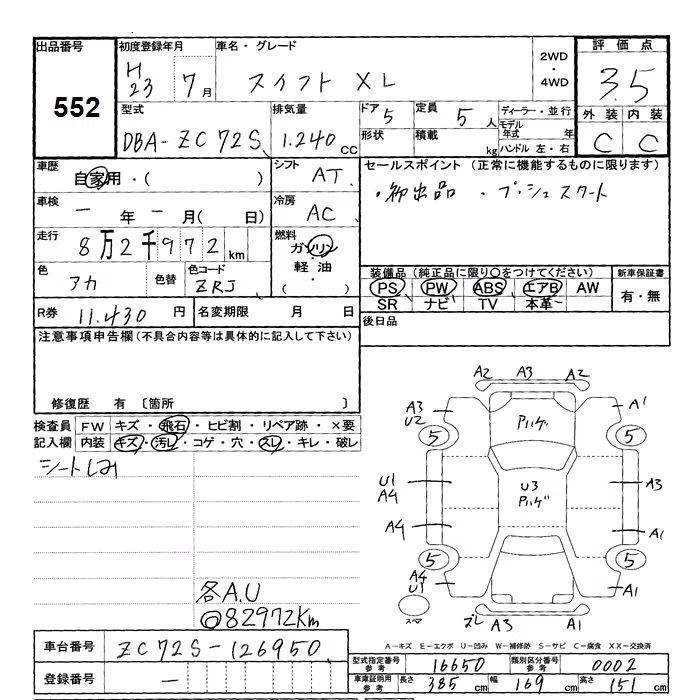 出品番号 552
初度登録年月 H23 7月
車名・グレード スイフト XL
2WD・4WD
評価点 3.5
外装 内装
C C
型式 DBA-ZC72S
排気量 1.240 cc
ドア 5
定員 5人
形状
積載 kg
ディーラー・並行
モデル年式 年
ハンドル 左・右
車歴 自家用・( )
シフト AT
セールスポイント (正常に機能するものに限ります)
・初出品 ・プッシュスタート
車検 ー年ー月( 日)
冷房 AC
走行 8万2千972km
燃料 ガソリン・軽油・( )
色 アカ
色替
色コード ZRJ
装備品(純正品に限り○をつけてください)
PS PW ABS エアB AW
SR ナビ TV 本革
新車保証書
有・無
R券 11.430円
名変期限 月 日
後日品
注意事項申告欄(不具合内容等は具体的に記入して下さい)
修復歴 有 〔箇所 〕
検査員記入欄
FW キズ・飛石・ヒビ割・リペア跡・×要
内装 キズ・汚レ・コゲ・穴・スレ・キレ・破レ
シートしみ
各A.U
◎82972Km
A2 A3 A2
A3 U2 Pハゲ A1
5 5
U1 A4 U3 Pハゲ A3
A4 A1
5 5
A4 U1 A1
スペア ズレ A3 A1
A-キズ E-エクボ U-凹み W-補修跡 S-サビ C-腐食 XX-交換済
車台番号 ZC72S-126950
登録番号 ー
型式指定番号 参考 16650
類別区分番号 参考 0002
車庫証明用 参考 長さ 385cm 幅 169cm 高さ 151cm